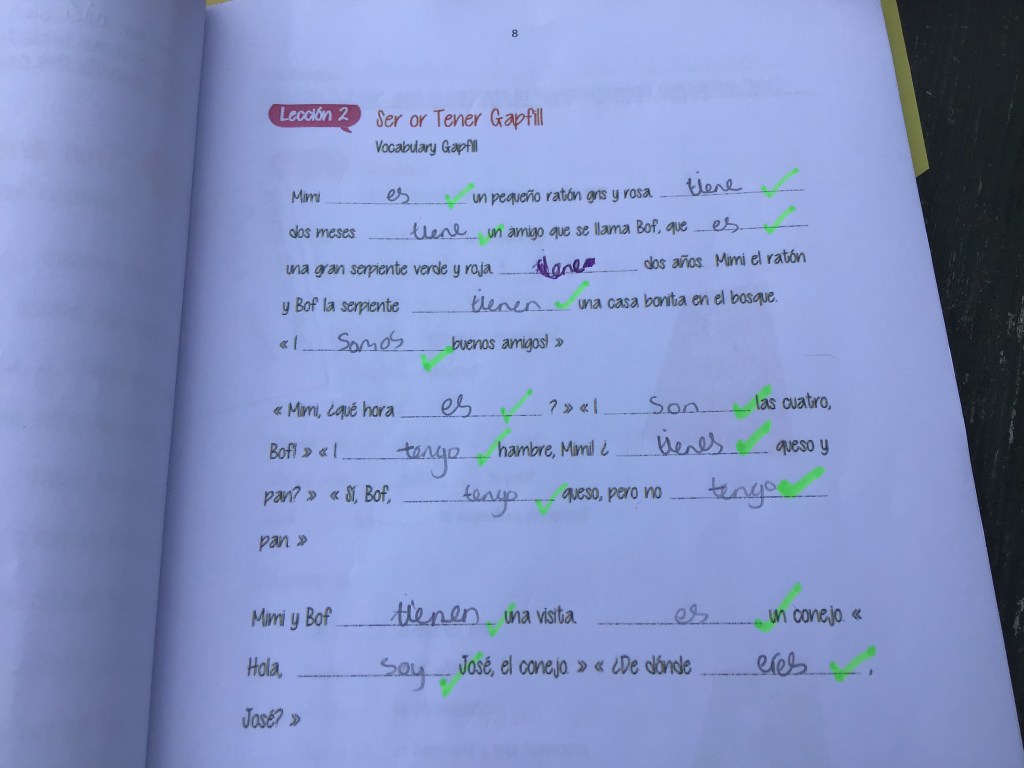 8
Lección 2 Ser or Tener Gapfill
Vocabulary Gapfill
Mimi es un pequeño ratón gris y rosa. tiene
dos meses. tiene un amigo que se llama Bof, que es
una gran serpiente verde y roja. tiene dos años. Mimi el ratón
y Bof la serpiente tienen una casa bonita en el bosque.
« ¡ Somos buenos amigos! »
« Mimi, ¿qué hora es ? » « ¡ Son las cuatro,
Bof! » « ¡ tengo hambre, Mimi! ¿ tienes queso y
pan? » « Sí, Bof, tengo queso, pero no tengo
pan. »
Mimi y Bof tienen una visita. es un conejo. «
Hola, soy José, el conejo. » « ¿De dónde eres ,
José? »